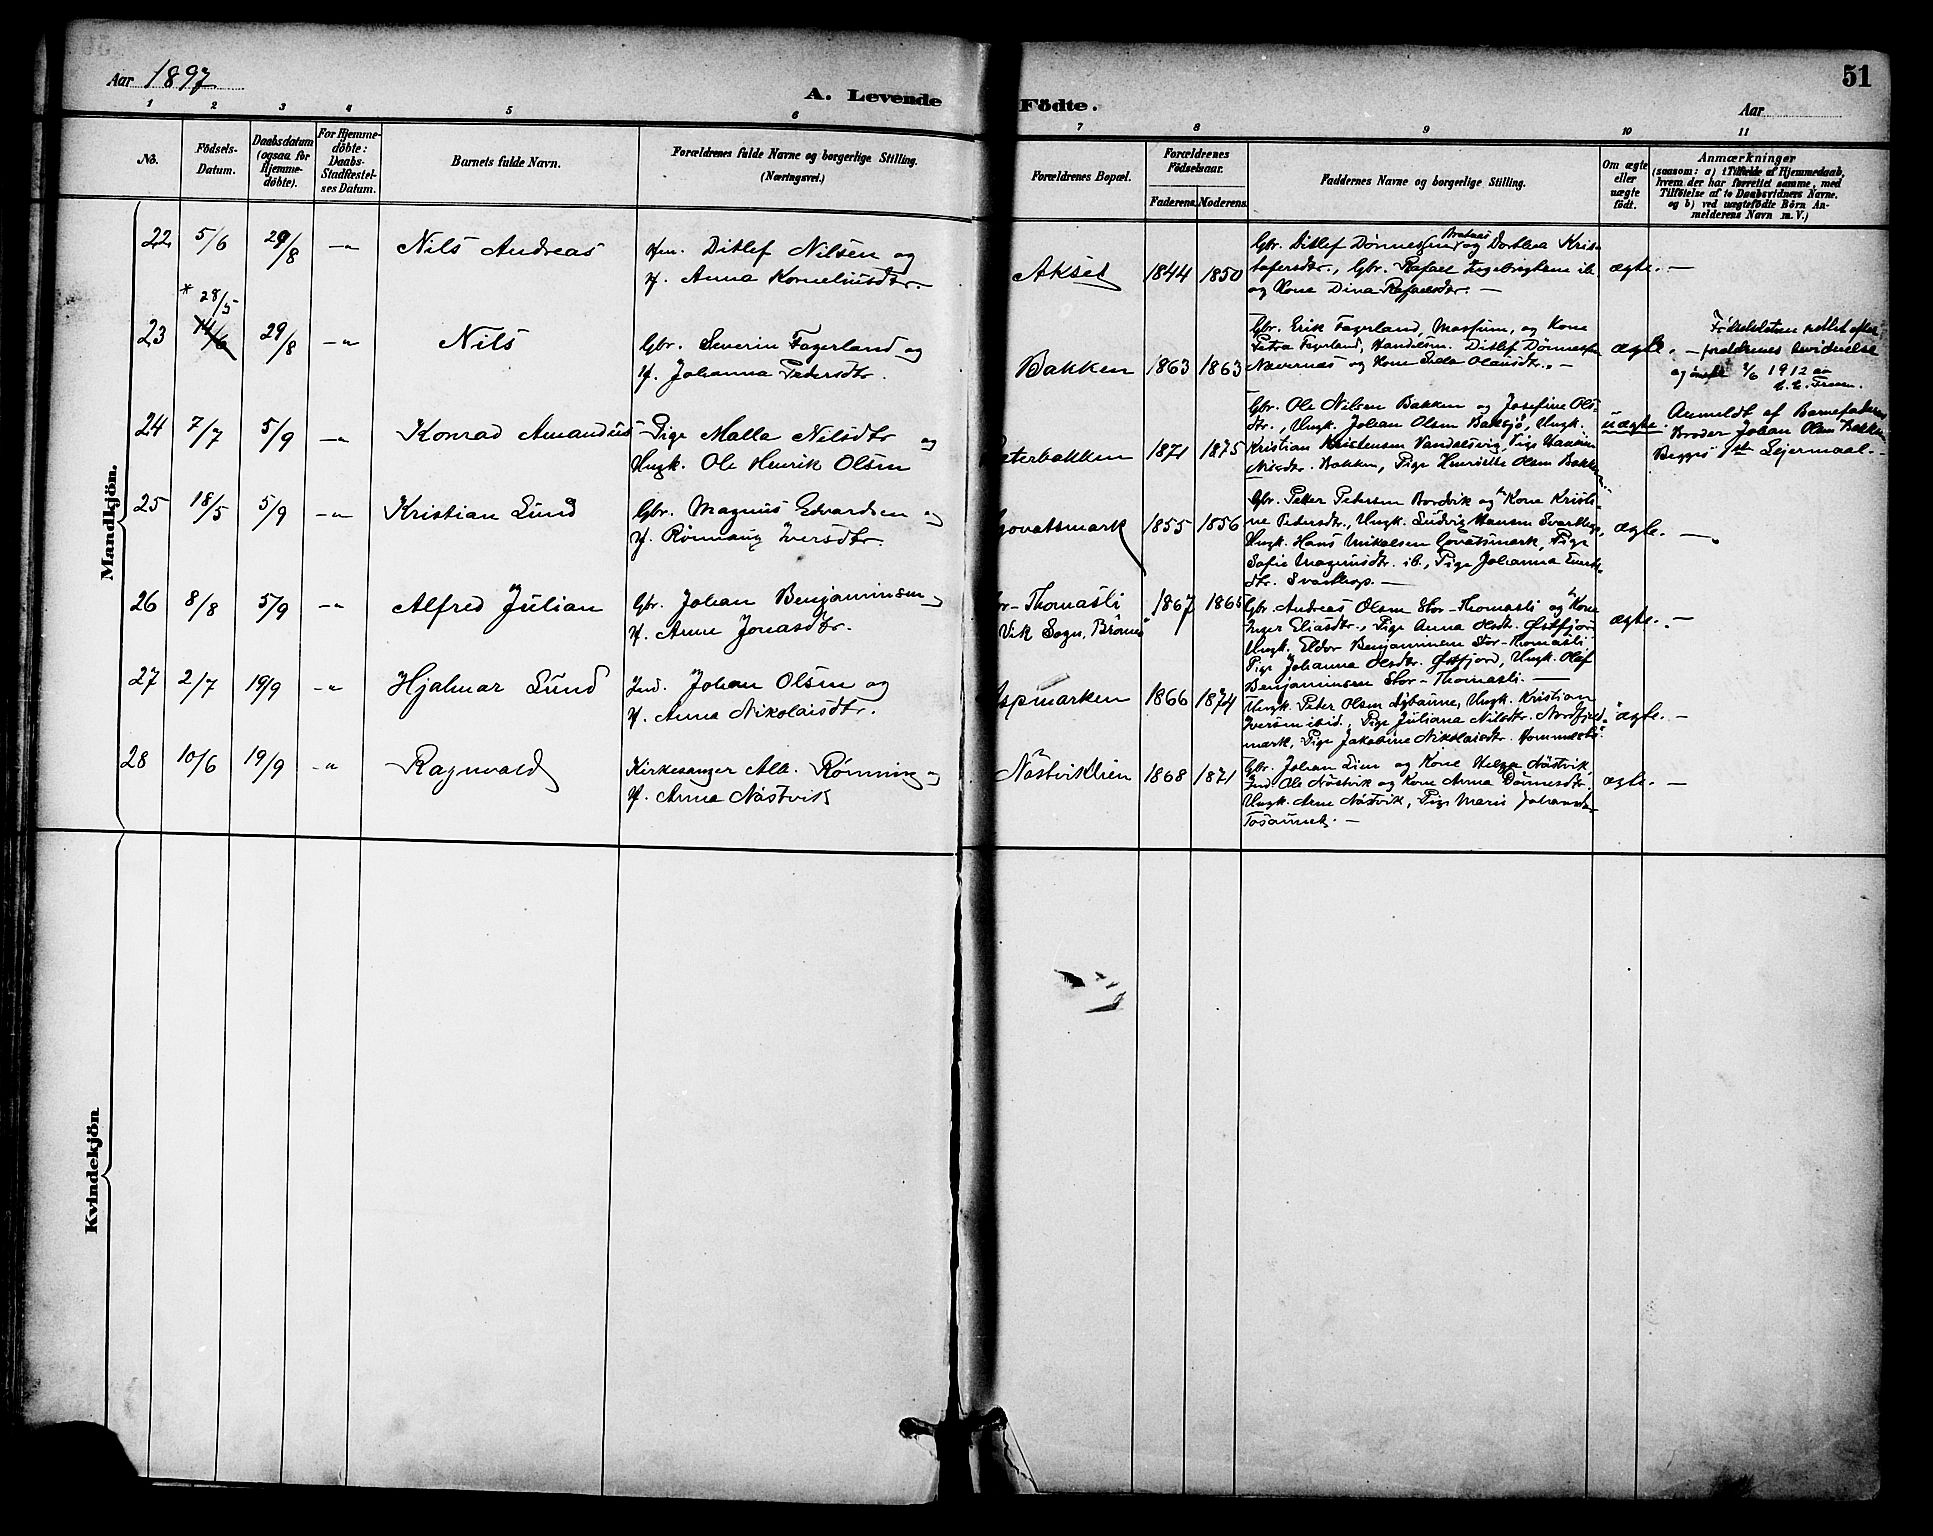 Aar 1897
A. Levende Födte.
Aar
51
1 2 3 4 5 6 7 8 9 10 11
No.
Födsels-Datum.
Daabsdatum (ogsaa for Hjemme-döbte).
For Hjemme-döbte: Daabs-Stadfæstel-ses Datum.
Barnets fulde Navn.
Forældrenes fulde Navne og borgerlige Stilling. (Næringsvei.)
Forældrenes Bopæl.
Forældrenes Födselsaar.
Faderens. Moderens.
Faddernes Navne og borgerlige Stilling.
Om ægte eller uægte födt.
Anmærkninger
(saasom: a) i Tilfælde af Hjemmedaab,
hvem der har forrettet samme, med
Tilföielse af to Daabsvidners Navne.
og b) ved uægtefödte Börn An-
melderens Navn m. V.)
Mandkjön.
22 5/6 29/8 -"- Nils Andreas
Hm. Ditlef Nilsen og
H. Anna Korneliusdtr.
Akset 1844 1850
Gbr. Ditlef Dønnesen Bratnes og Dorthea Kris-
tofersdtr., Gbr. Rafael Ingebrigtsen ib.
og Kone Dina Rafaelsdtr. —
ægte. —
* 28/5
23 14/6 29/8 -"- Nils
Gbr. Severin Fagerland og
H. Johanna Pedersdtr.
Bakken 1863 1863
Gbr. Erik Fagerland, Mosjøen, og Kone
Petra Fagerland, Handelsm. Ditlef Dønnesen
Nævernæs og Kone Olausdtr. —
ægte. —
Fødselsdatoen rettet efter
forældrenes
1912
24 7/7 5/9 -"- Konrad Amandus
Pige Malla Nilsdtr og
Ungk. Ole Henrik Olsen
Peterbakken 1871 1875
Gbr. Ole Nilsen Bakken og Josefine Ols-
dtr., Ungk. Johan Olsen Baksjö, Ungk.
Kristian Kristensen Vandalsvig, Pige Hansine
Nilsdtr. Bakken, Pige Henriette Olsen Bakken
uægte.
Anmeldt af Barnefaderens
Broder Johan Olsen Bakken
Begges 1ste Lejermaal. —
25 18/5 5/9 -"- Kristian Lund
Gbr. Magnus Edvardsen og
H. Rønnaug Iversdtr
Govatsmark 1855 1856
Gbr. Petter Petersen Bordvik og Kone Kristi-
ne Pedersdtr., Ungk. Ludvig Hansen
Ungk. Hans Mikalsen Govatsmark, Pige
Sofie Magnusdtr. ib., Pige Johanna
dtr. —
ægte. —
26 8/8 5/9 -"- Alfred Julian
Gbr. Johan Benjaminsen og
H. Anne Jonasdtr.
Stor-Thomasli
Vik Sogn, Brønnö 1867 1865
Gbr. Andreas Olsen Stor-Thomasli og Kone
Inger Eliasdtr., Pige Anna Olsdtr. Østfjord
Ungk. Eldor Benjaminsen Stor-Thomasli
Pige Johanna Olsdtr. Østfjord, Ungk. Olaf
Benjaminsen Stor-Thomasli. —
ægte. —
27 2/7 19/9 -"- Hjalmar Lund
Ind. Johan Olsen og
H. Anna Nikolaisdtr.
Aspmarken 1866 1874
Ungk. Peter Olsen, Ungk. Kristian
Iversen ibid., Pige Juliana Nilsdtr. Nordfjeld-
mark, Pige Jakobine Nikolaisdtr.
ægte. —
28 10/6 19/9 -"- Ragnvald
Kirkesanger Alb. Rønning og
H. Anna Nästvik
Nästviklien 1868 1871
Gbr. Johan Lien og Kone Helga Nästvik,
Ind. Ole Nästvik og Kone Anna Dønnesdtr.
Ungk. Arne Nästvik, Pige Maris Johansdtr
Tosaunet. —
ægte. —
Kvindekjön.